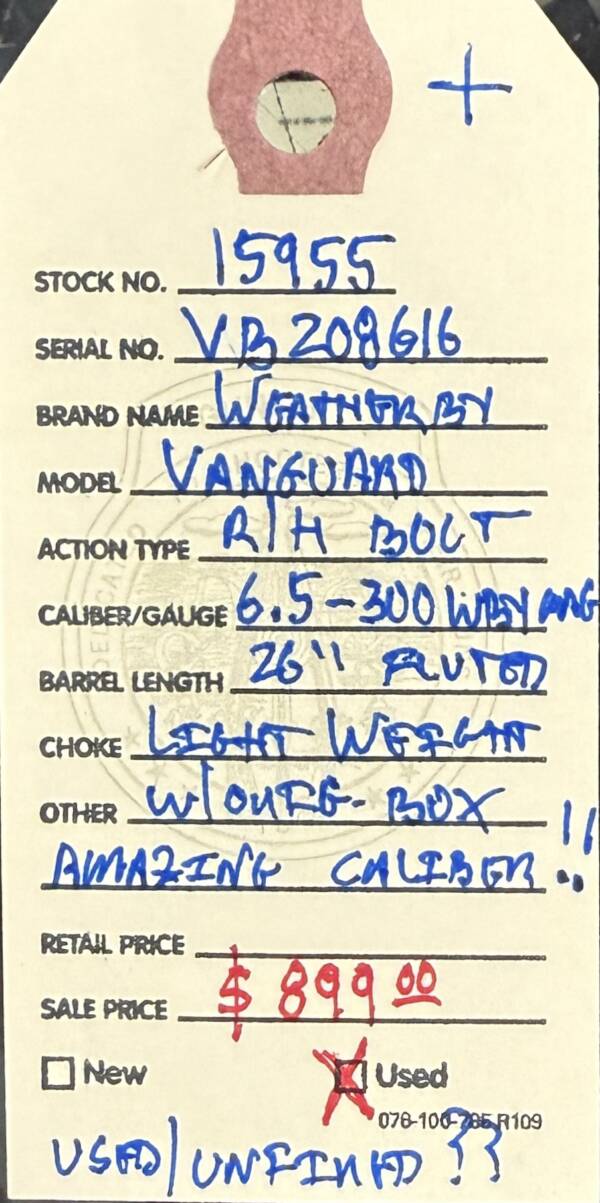 +
STOCK NO. 15955
SERIAL NO. VB208616
BRAND NAME WEATHERBY
MODEL VANGUARD
ACTION TYPE R/H BOLT
CALIBER/GAUGE 6.5-300 WBY MAG
BARREL LENGTH 26" FLUTED
CHOKE LIGHT WEIGHT
OTHER W/ORIG. BOX
AMAZING CALIBER!!
RETAIL PRICE
SALE PRICE $899.00
New Used
078-100-785 R109
USED/UNFIRED ??